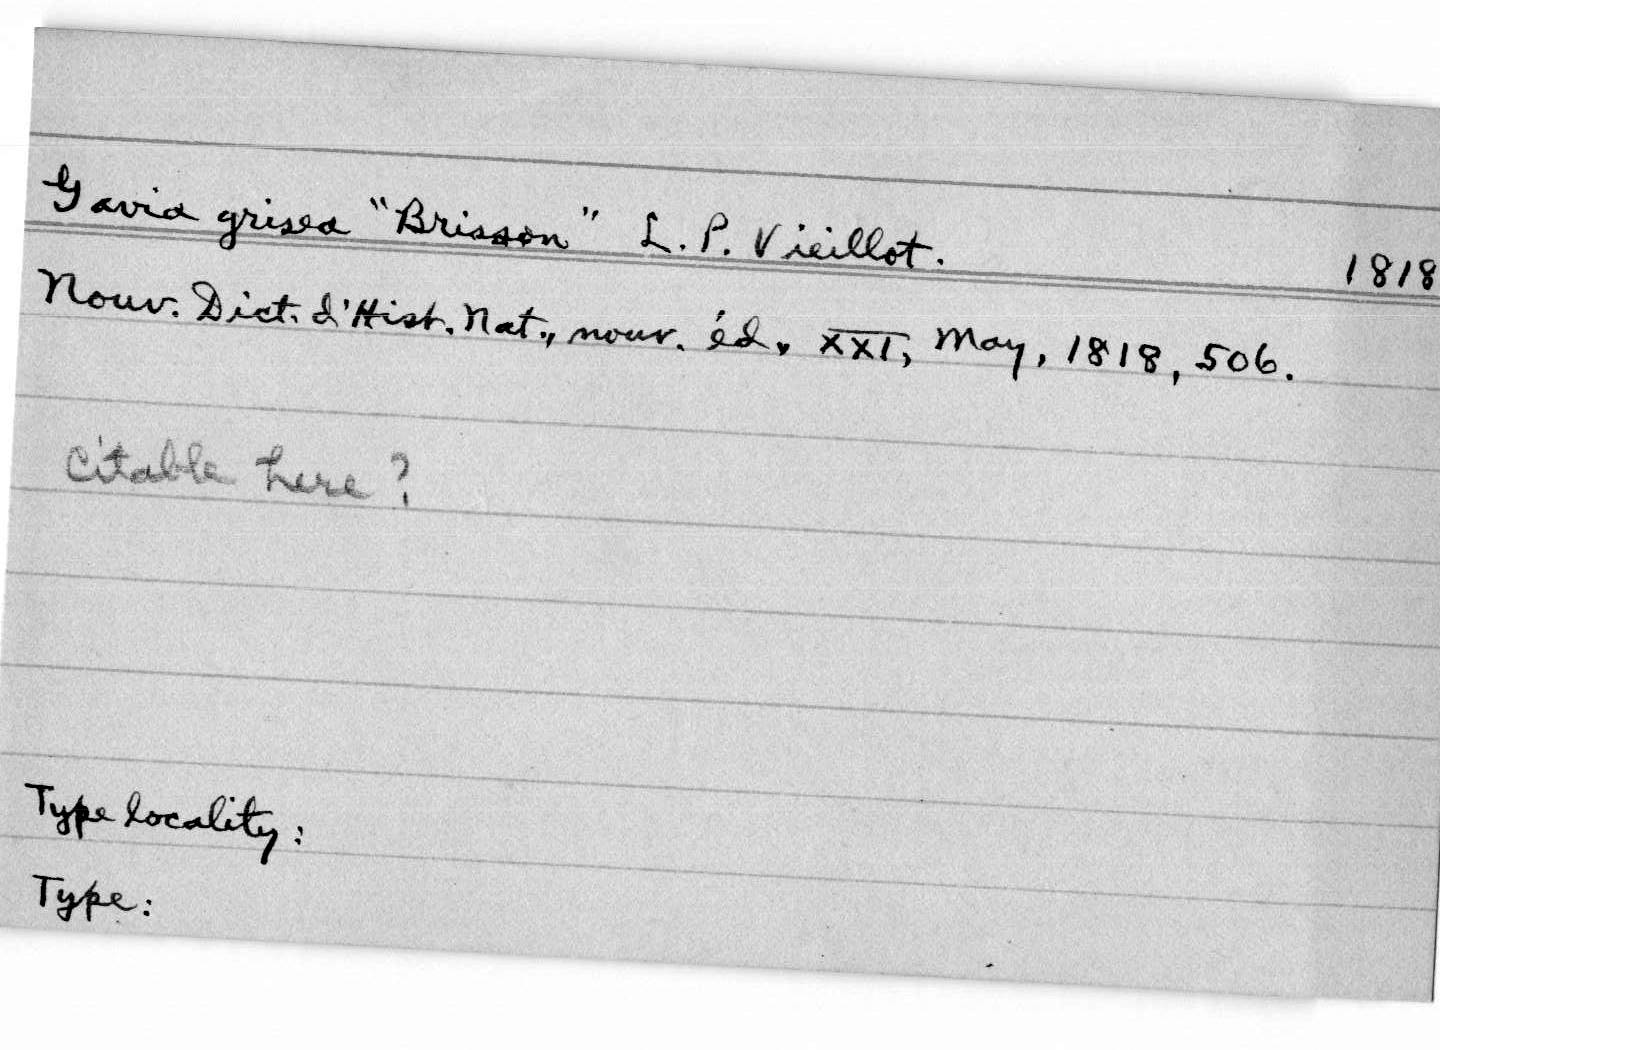 Gavia grisea "Brisson" L. P. Vieillot. 1818
Nouv. Dict. d'Hist. Nat., nouv. éd., XXI, May, 1818, 506.
Citable here?
Type locality:
Type: